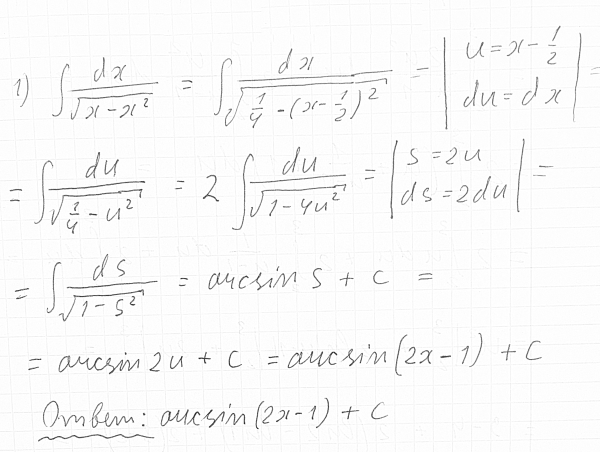 1) ∫ dx/√(x - x²) = ∫ dx/√(1/4 - (x - 1/2)²) = | u = x - 1/2 ; du = dx | =
= ∫ du/√(1/4 - u²) = 2 ∫ du/√(1 - 4u²) = | s = 2u ; ds = 2du | =
= ∫ ds/√(1 - s²) = arcsin s + c =
= arcsin 2u + c = arcsin(2x - 1) + C
Ответ: arcsin(2x - 1) + C